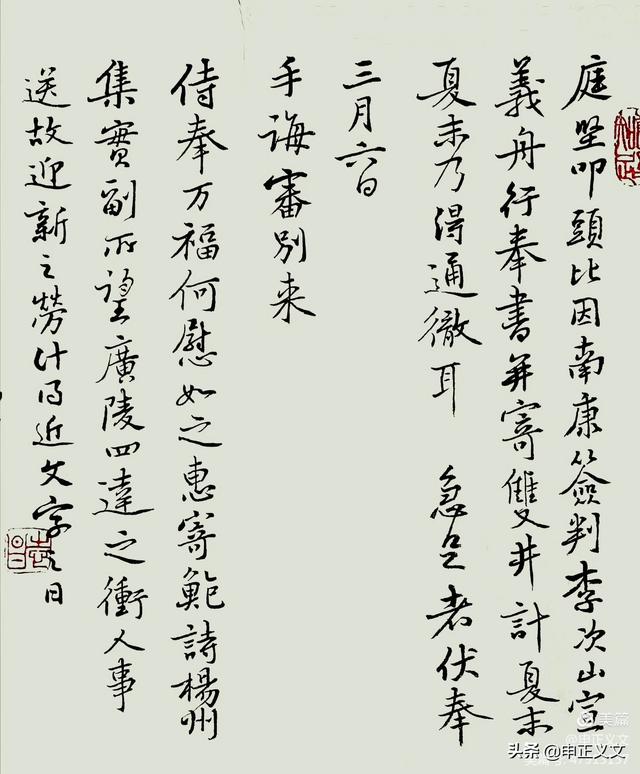 庭坚叩頭比因南康簽判李次山宣
義舟行奉書并寄雙井計夏末
夏末乃得通徹耳 急足者伏奉
三月六日
手誨審別来
侍奉万福何慰如之惠寄鮑詩楊州
集實副所望廣陵四達之衝人事
送故迎新之勞计得近文字之日
美篇
@申正义文
头条 @申正义文